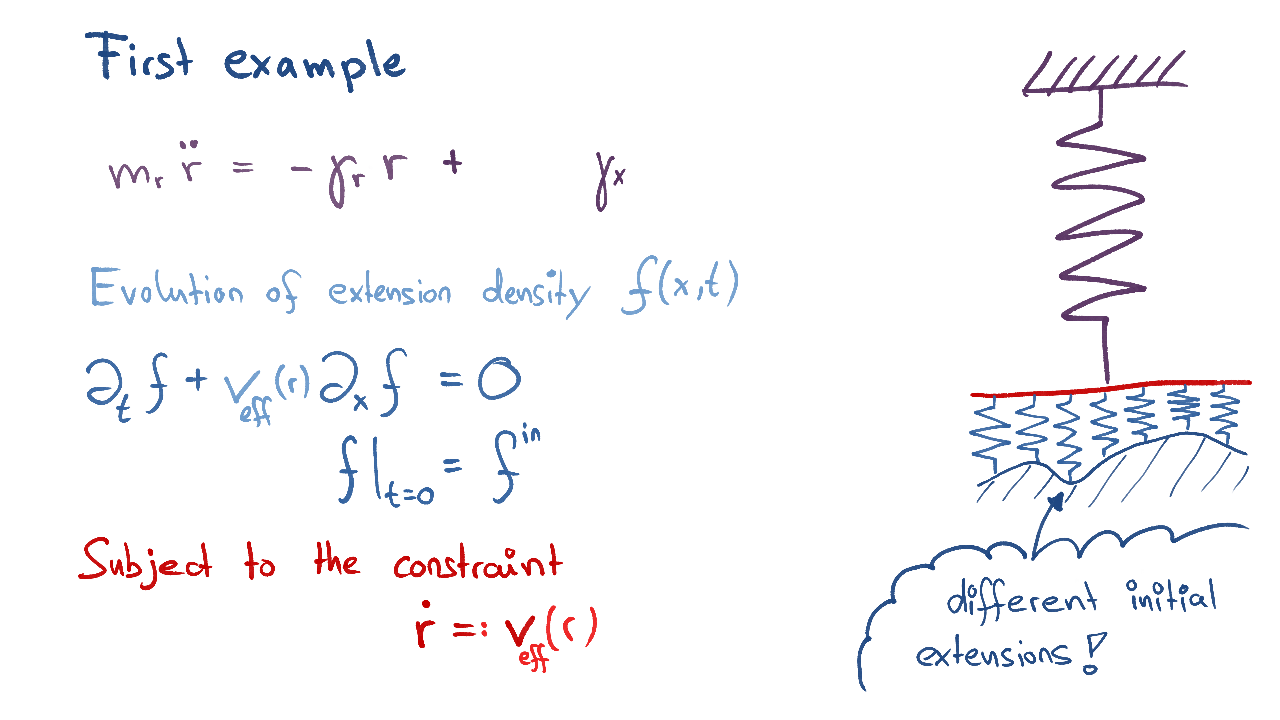 First example
m_r r̈ = - γ_r r +      γ_x
Evolution of extension density f(x,t)
∂_t f + v_eff(r) ∂_x f = 0
f|_{t=0} = f^{in}
Subject to the constraint
ṙ =: v_eff(r)
different initial
extensions!